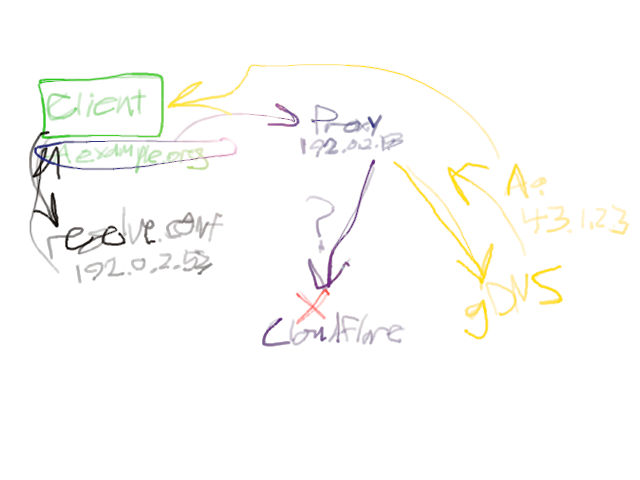 Client
A example.org
resolve.conf
192.0.2.53
Proxy
192.0.2.53
?
Cloudflare
A:
43.1.23
gDNS